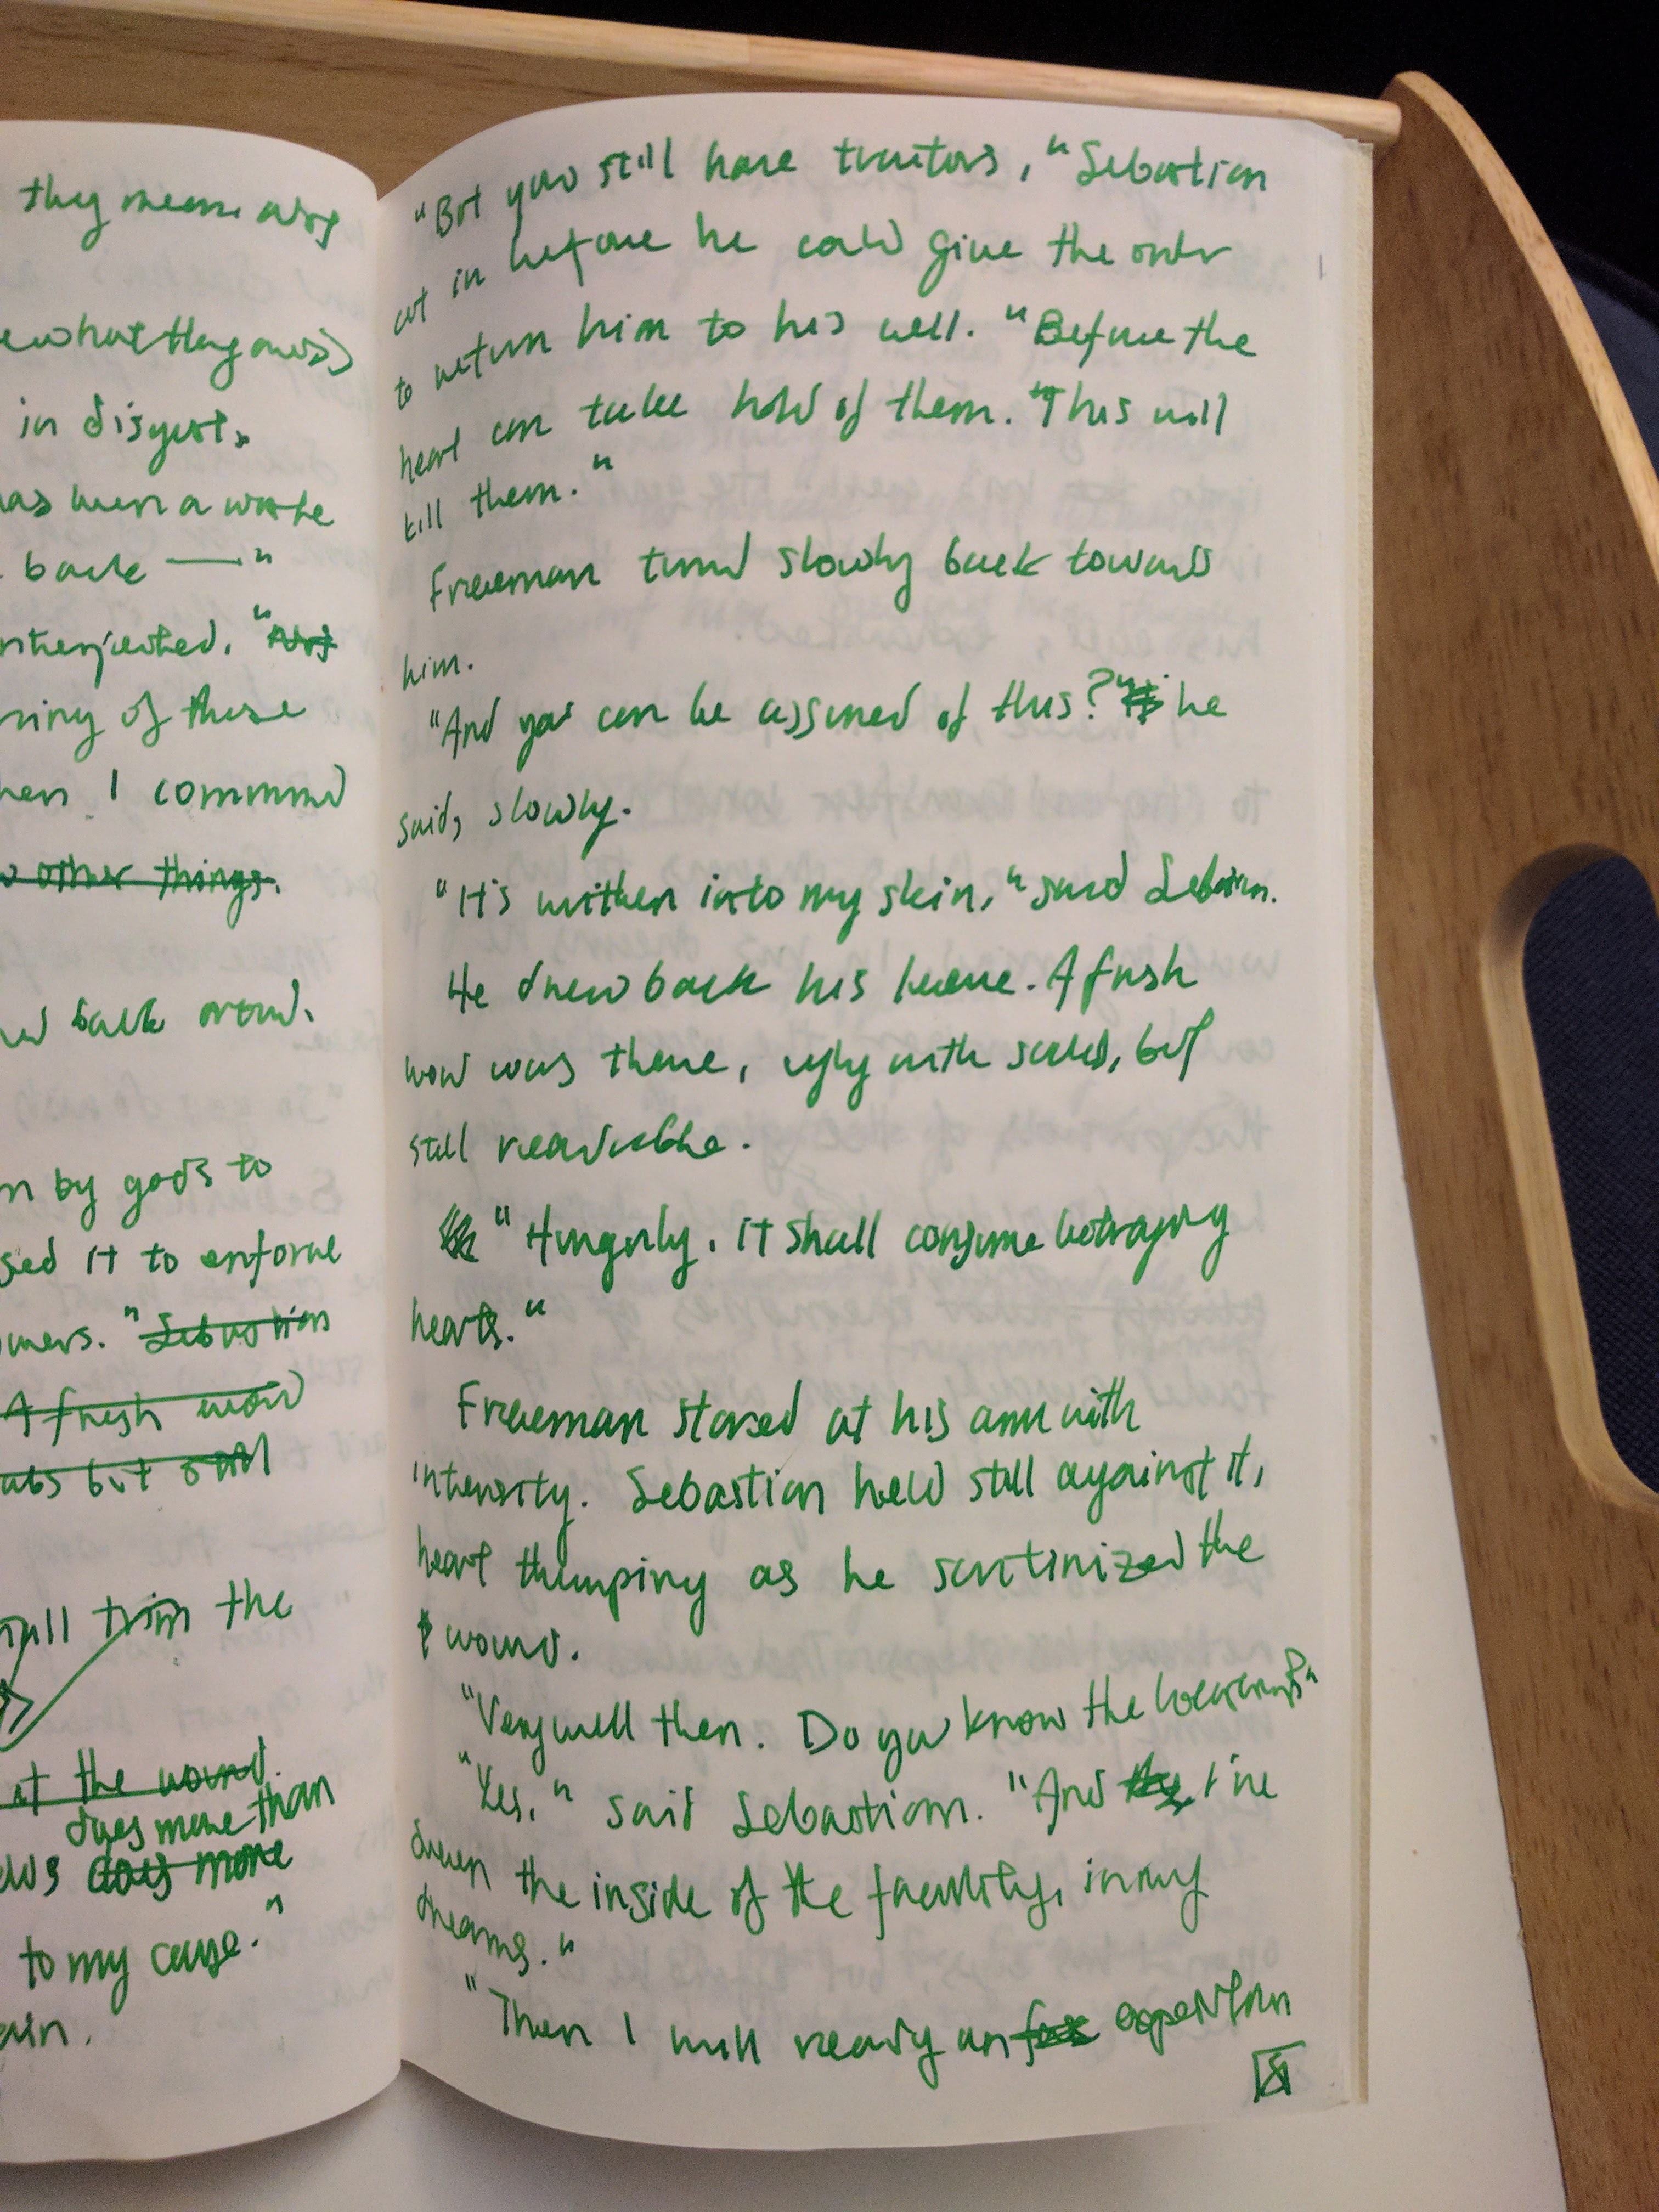 they mean any
what they
in disgust.
as been a waste
back —"
interjected. "
of these
when I command
other things.
back
by gods to
used it to enforce
" Sebastian
A fresh word
but still
trim the
at the wound.
does more than
does more
to my cause."
"But you still have traitors," Sebastian
cut in before he could give the order
to return him to his cell. "Before the
heart can take hold of them. This will
kill them."
Freeman turned slowly back towards
him.
"And you can be assured of this?" he
said, slowly.
"It's written into my skin," said Sebastian.
He drew back his sleeve. A fresh
word was there, ugly with scabs, but
still readable.
"Hungrily, it shall consume betraying
hearts."
Freeman stared at his arm with
intensity. Sebastian held still against it,
heart thumping as he scrutinized the
wound.
"Very well then. Do you know the locations?"
"Yes," said Sebastian. "And I've
drawn the inside of the facility, in my
dreams."
"Then I will ready an expedition